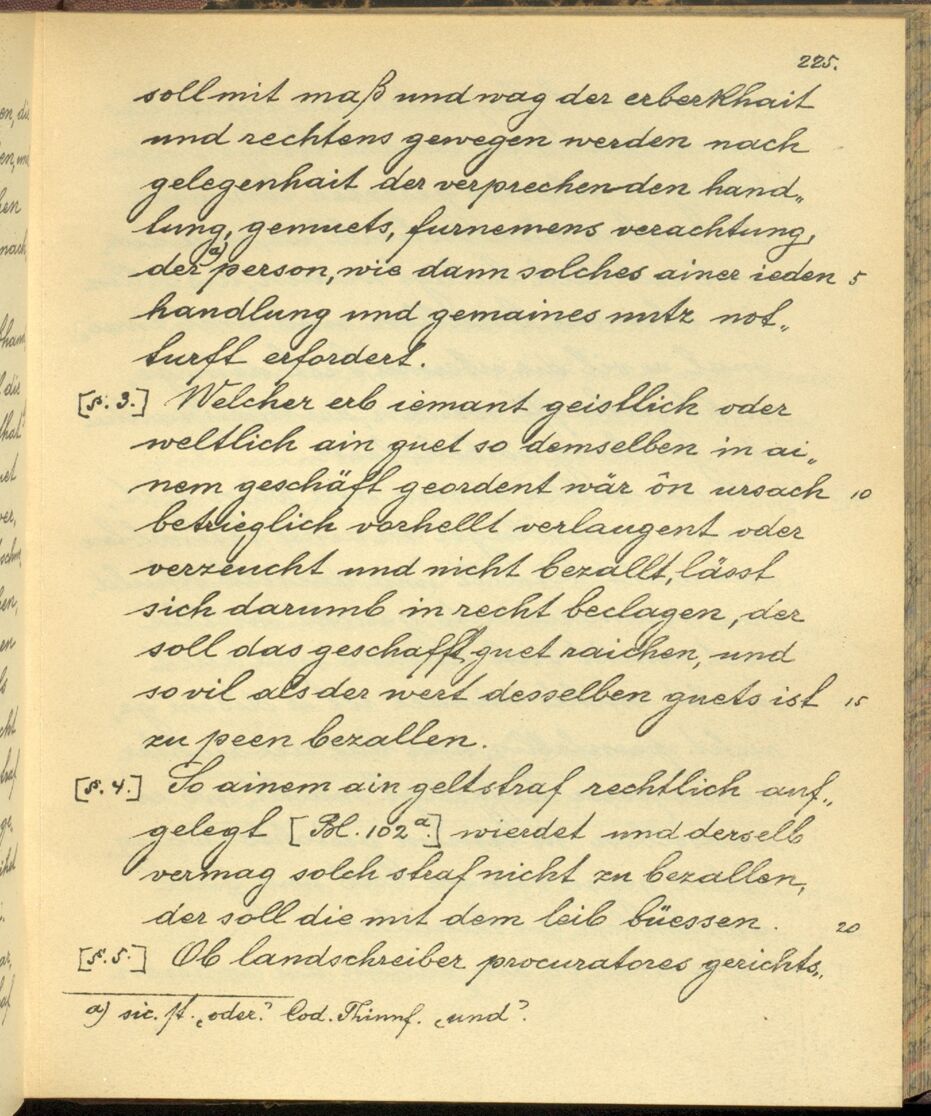 225.
soll mit maß und wag der erberkhait
und rechtens gewegen werden nach
gelegenhait der versprechenden hand„
lung, gemuets, furnemens verachtung,
der a) person, wie dann solches ainer ieden 5
handlung und gemaines nutz not„
turft erfordert.
[§. 3.] Welcher erb iemant geistlich oder
weltlich ain guet so demselben in ai„
nem geschäft geordent wär ôn ursach 10
betrieglich vorhellt verlaugent oder
verzeucht und nicht bezallt, lässt
sich darumb in recht beclagen, der
soll das geschafft guet raichen, und
sovil als der wert desselben guets ist 15
zu peen bezallen.
[§. 4.] So ainem ain geltstraf rechtlich auf„
gelegt [Bl. 102a.] wierdet und derselb
vermag solch straf nicht zu bezallen,
der soll die mit dem leib büessen. 20
[§. 5.] Ob landschreiber procuratores gerichts„
a) sic. st. „oder.“ Cod. Thinnf. „und“.